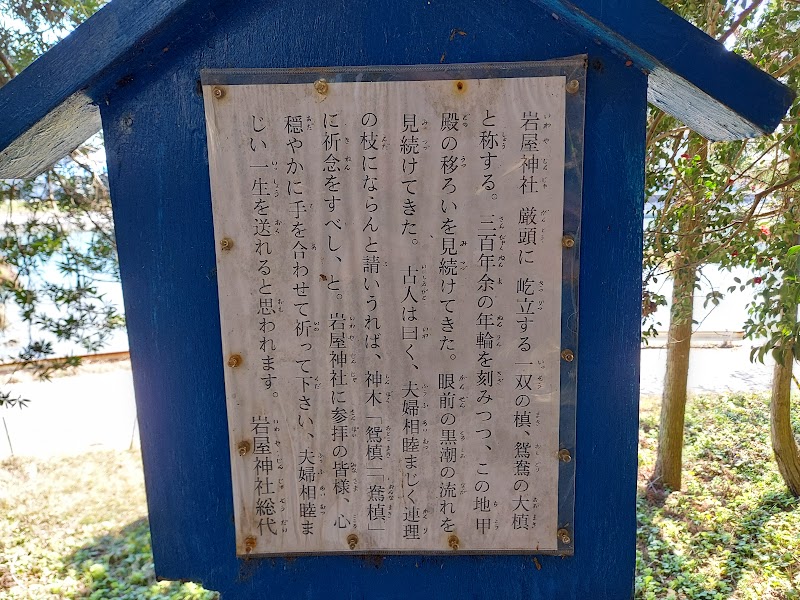 岩屋神社 厳頭に 屹立する一双の槙、鴛鴦の大槙
と称する。三百年余の年輪を刻みつつ、この地甲
殿の移ろいを見続けてきた。眼前の黒潮の流れを
見続けてきた。 古人は曰く、夫婦相睦まじく連理
の枝にならんと請いうれば、神木「鴛槙」「鴦槙」
に祈念をすべし、と。岩屋神社に参拝の皆様、心
穏やかに手を合わせて祈って下さい、夫婦相睦ま
じい一生を送れると思われます。 岩屋神社総代